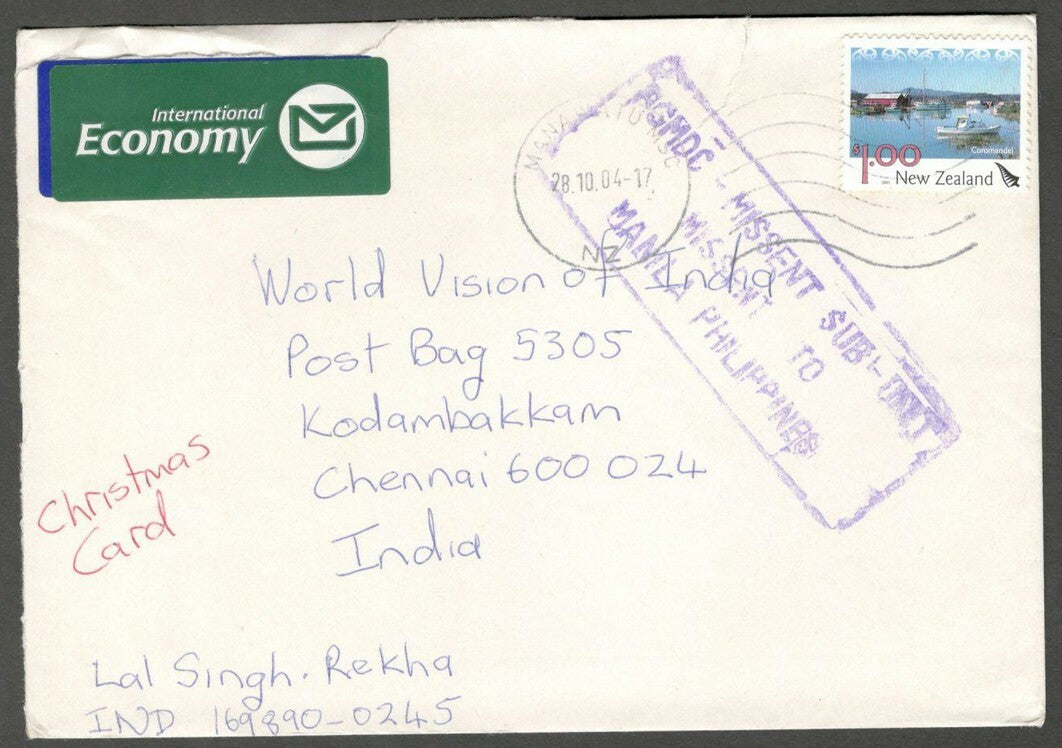 International
Economy
28.10.04-17
NZ
MISSENT SUB-UNIT
MISSENT TO
MANILA PHILIPPINES
Coromandel
$1.00
New Zealand
World Vision of India
Post Bag 5305
Kodambakkam
Chennai 600 024
India
Christmas
Card
Lal Singh. Rekha
IND 169890-0245